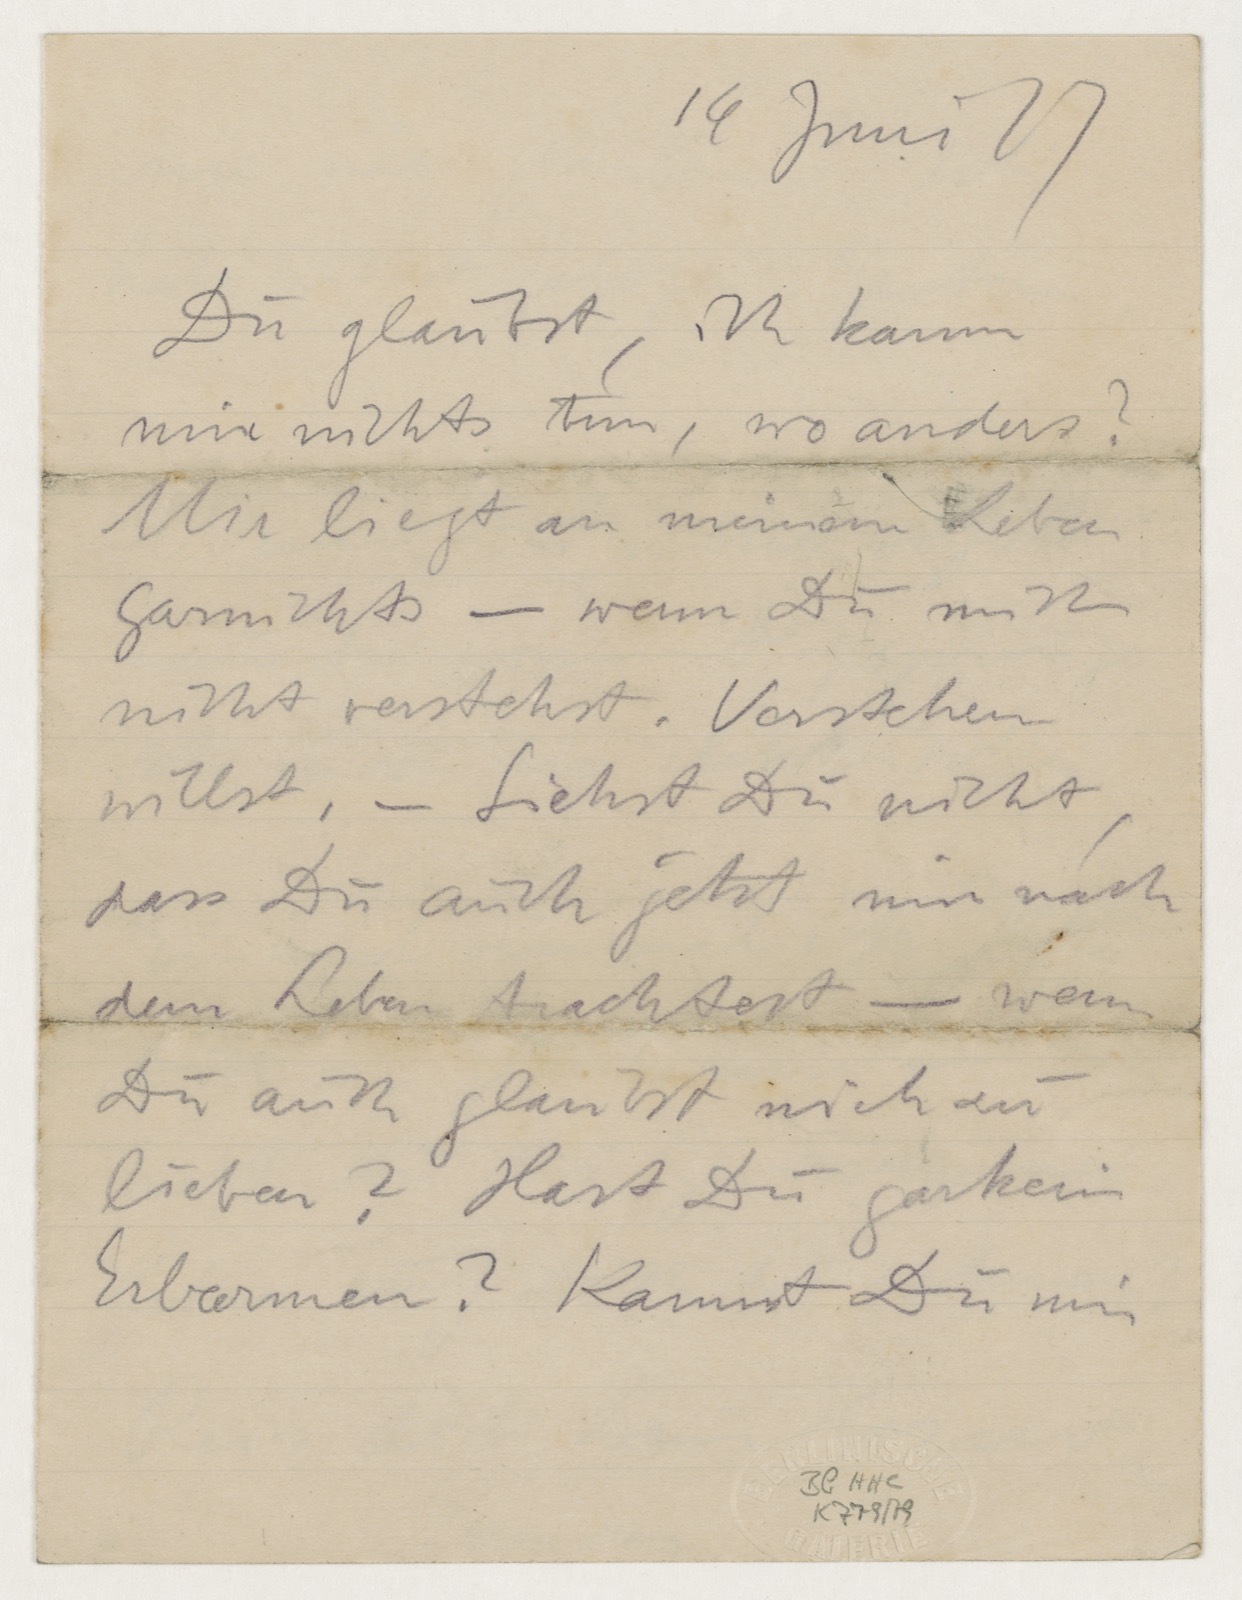 14 Juni 17
Du glaubst, ich kann
mir nichts tun, wo anders?
Mir liegt an meinem Leben
garnichts — wenn Du mich
nicht verstehst. Verstehen
willst, — Siehst Du nicht,
dass Du auch jetzt mir nach
dem Leben trachtest — wenn
Du auch glaubst mich zu
lieben? Hast Du garkein
Erbarmen? Kannst Du mir
BERLINISCHE
BG HHC
K 779/79
GALERIE